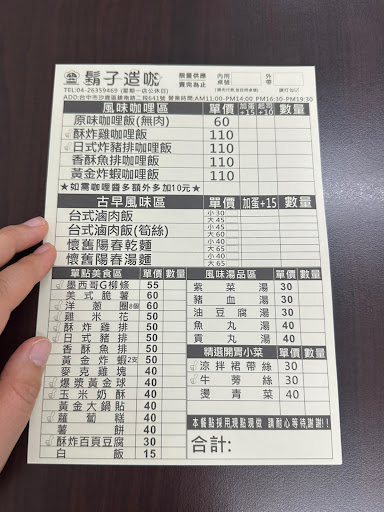 鬍子造咖
限量供應
賣完為止
內用
桌號
外帶
TEL:04-26359469 (星期一店公休日)
ADD:台中市沙鹿區鎮南路二段641號 營業時間:AM11:00-PM14:00 PM16:30-PM19:30
風味咖哩區 單價 加蛋+15 數量
原味咖哩飯(無肉) 60
酥炸雞咖哩飯 110
日式炸豬排咖哩飯 110
香酥魚排咖哩飯 110
黃金炸蝦咖哩飯 110
★如需咖哩醬多額外多加10元★
古早風味區 單價 加蛋+15 數量
台式滷肉飯 小30 大45
台式滷肉飯(筍絲) 小45 大60
懷舊陽春乾麵 小45 大65
懷舊陽春湯麵 小45 大65
單點美食區 單價 數量
墨西哥G柳條 55
美式脆薯 60
洋蔥圈8個 60
雞米花 50
酥炸雞排 50
日式豬排 50
香酥魚排 50
黃金炸蝦2支 50
麥克雞塊 40
爆漿黃金球 40
玉米奶酥 40
黃金大鍋貼 40
蘿蔔糕 40
薯餅 30
酥炸百頁豆腐 30
白飯 15
風味湯品區 單價 數量
紫菜湯 30
豬血湯 30
油豆腐湯 30
魚丸湯 40
貢丸湯 40
精選開胃小菜 單價 數量
涼拌裙帶絲 30
牛蒡絲 30
燙青菜 40
本餐點採用,現點現做 請耐心等待,謝謝!!
合計: